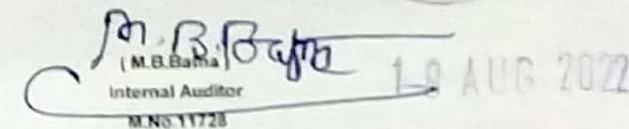 (M.B.Bafna)
Internal Auditor
M.No.11728
AUG 2022